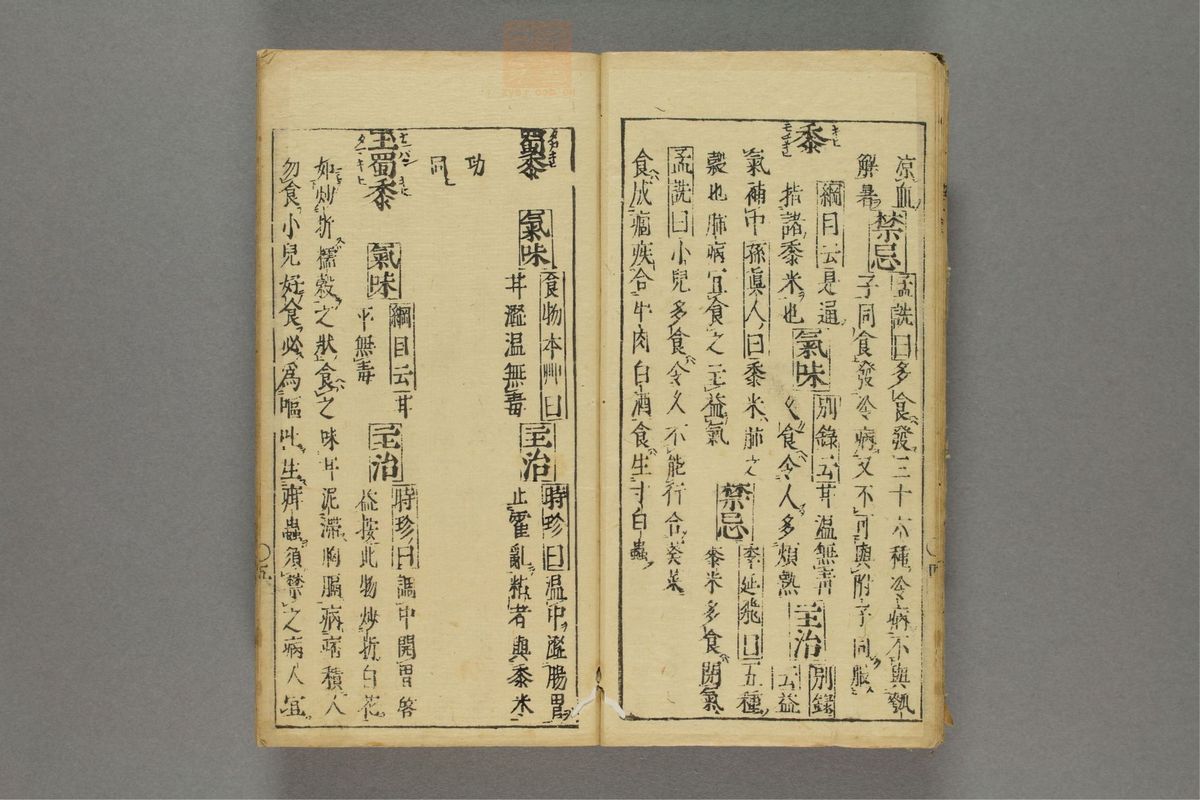 凉血
解暑
禁忌
孟詵曰多食發三十六種冷病不與瓠
子同食發冷病又不可與附子同服
黍
キヒ
モチキヒ
綱目云是通
指諸黍米也
氣味
別錄云甘溫無毒
久食令人多煩熱
主治
別錄
云益
氣補中孫眞人曰黍米肺之
穀也肺病宜食之主益氣
禁忌
李延飛曰五種
黍米多食閉氣
孟詵曰小兒多食令久不能行合葵菜
食成痼疾合牛肉白酒食生寸白蟲
四
蜀黍
氣味
食物本艸曰
甘濇温無毒
主治
時珍曰温中濇膓胃
止霍亂粘者與黍米
功
同
玉蜀黍
氣味
綱目云甘
平無毒
主治
時珍曰調中開胃畧
益按此物炒折白花
如炒折糯穀之狀食之味甘泥滯胸膈病痞積人
勿食小兒好食必爲嘔吐生癖蟲須禁之病人宜
五